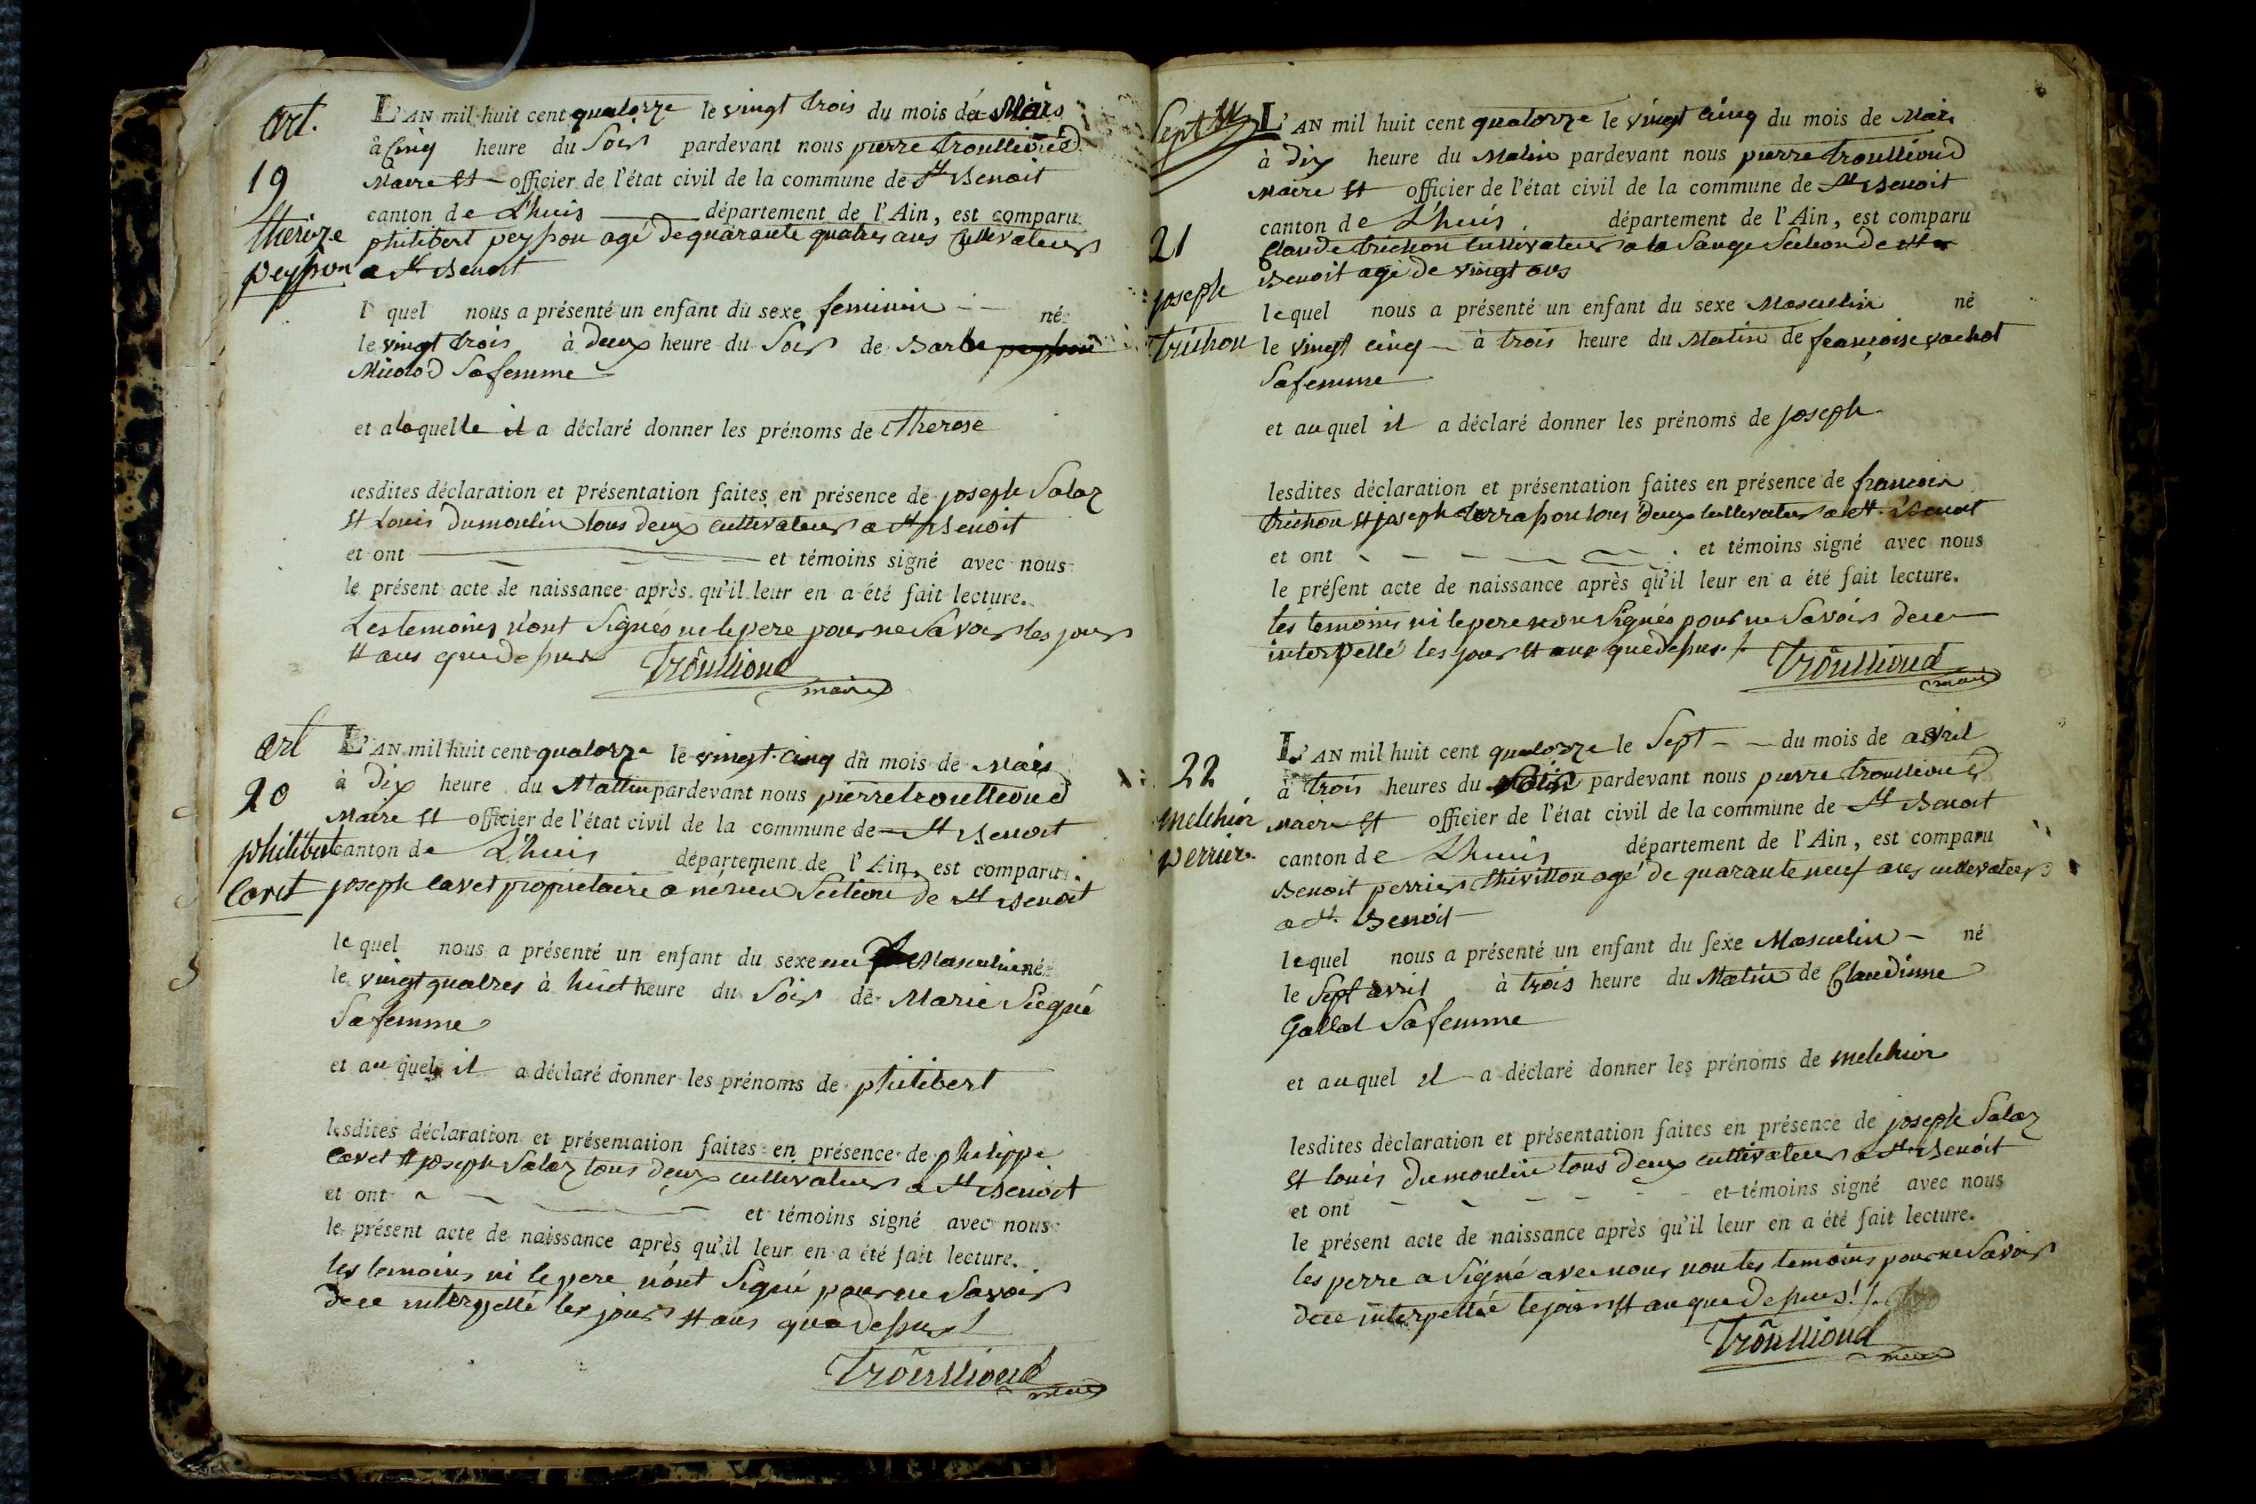 art.
19
thereze
peysson
L'AN mil huit cent quatorze le vingt trois du mois de Mars
à Cinq heure du Soir pardevant nous pierre trouilloud
Maire et officier de l'état civil de la commune de St Benoit
canton de L'huis département de l'Ain, est comparu
philibert peysson agé de quarante quatres ans Cultivateur
a St Benoit
lequel nous a présenté un enfant du sexe feminin né
le vingt trois à deux heure du Soir de Barbe peysson
Sa femme
et a laquelle il a déclaré donner les prénoms de therese
lesdites déclaration et présentation faites en présence de joseph Salaz
et Louis Dumoulin tous deux cultivateur a St Benoit
et ont et témoins signé avec nous
le présent acte de naissance après qu'il leur en a été fait lecture.
Les temoins n'ont Signés ni le pere pour ne Savoir les jour
et ans que dessus
Trôullioud
maire
art
20
philibert
Cavet
L'AN mil huit cent quatorze le vingt cinq du mois de Mars
à Dix heure du Mattin pardevant nous pierre troullioud
Maire et officier de l'état civil de la commune de St Benoit
canton de L'huis département de l'Ain, est comparu
joseph Cavet proprietaire a Section de St Benoit
lequel nous a présenté un enfant du sexe Masculin né
le vingt quatres à huit heure du Soir de Marie
Sa femme
et au quel il a déclaré donner les prénoms de philibert
lesdites déclaration et présentation faites en présence de philippe
Cavet et joseph Salaz tous deux cultivateur a St Benoit
et ont et témoins signé avec nous
le présent acte de naissance après qu'il leur en a été fait lecture.
les temoins ni le pere n'ont Signé pour ne Savoir
de ce interpellé les jour et ans que dessus
Trôullioud
maire
Sept
21
joseph
trichon
L'AN mil huit cent quatorze le vingt cinq du mois de Mars
à dix heure du Matin pardevant nous pierre troullioud
Maire et officier de l'état civil de la commune de St Benoit
canton de L'huis département de l'Ain, est comparu
Claude trichon Cultivateur a la Sauge Section de St
Benoit agé de vingt ans
lequel nous a présenté un enfant du sexe Masculin né
le vingt cinq à trois heure du Matin de françoise vachot
Sa femme
et au quel il a déclaré donner les prénoms de joseph
lesdites déclaration et présentation faites en présence de francois
trichon et joseph terrasson tous deux cultivateur a St. Benoit
et ont et témoins signé avec nous
le présent acte de naissance après qu'il leur en a été fait lecture.
les temoins ni le pere non Signés pour ne Savoir de ce
interpellé les jour et ans que dessus
Trôullioud
maire
22
melchior
perrier
L'AN mil huit cent quatorze le Sept du mois de avril
à trois heures du Soir pardevant nous pierre troullioud
Maire et officier de l'état civil de la commune de St Benoit
canton de L'huis département de l'Ain, est comparu
Benoit perrier thivillon agé de quarante neuf ans cultivateur
a St. Benoit
lequel nous a présenté un enfant du sexe Masculin né
le Sept avril à trois heure du Matin de Claudinne
Gallat Sa femme
et au quel il a déclaré donner les prénoms de melchior
lesdites déclaration et présentation faites en présence de joseph Salaz
et louis dumoulin tous deux cultivateur a St Benoit
et ont et témoins signé avec nous
le présent acte de naissance après qu'il leur en a été fait lecture.
les perre a Signé avec nous non les temoins pour ne Savoir
de ce interpellée le jour et an que dessus
Trôullioud
maire